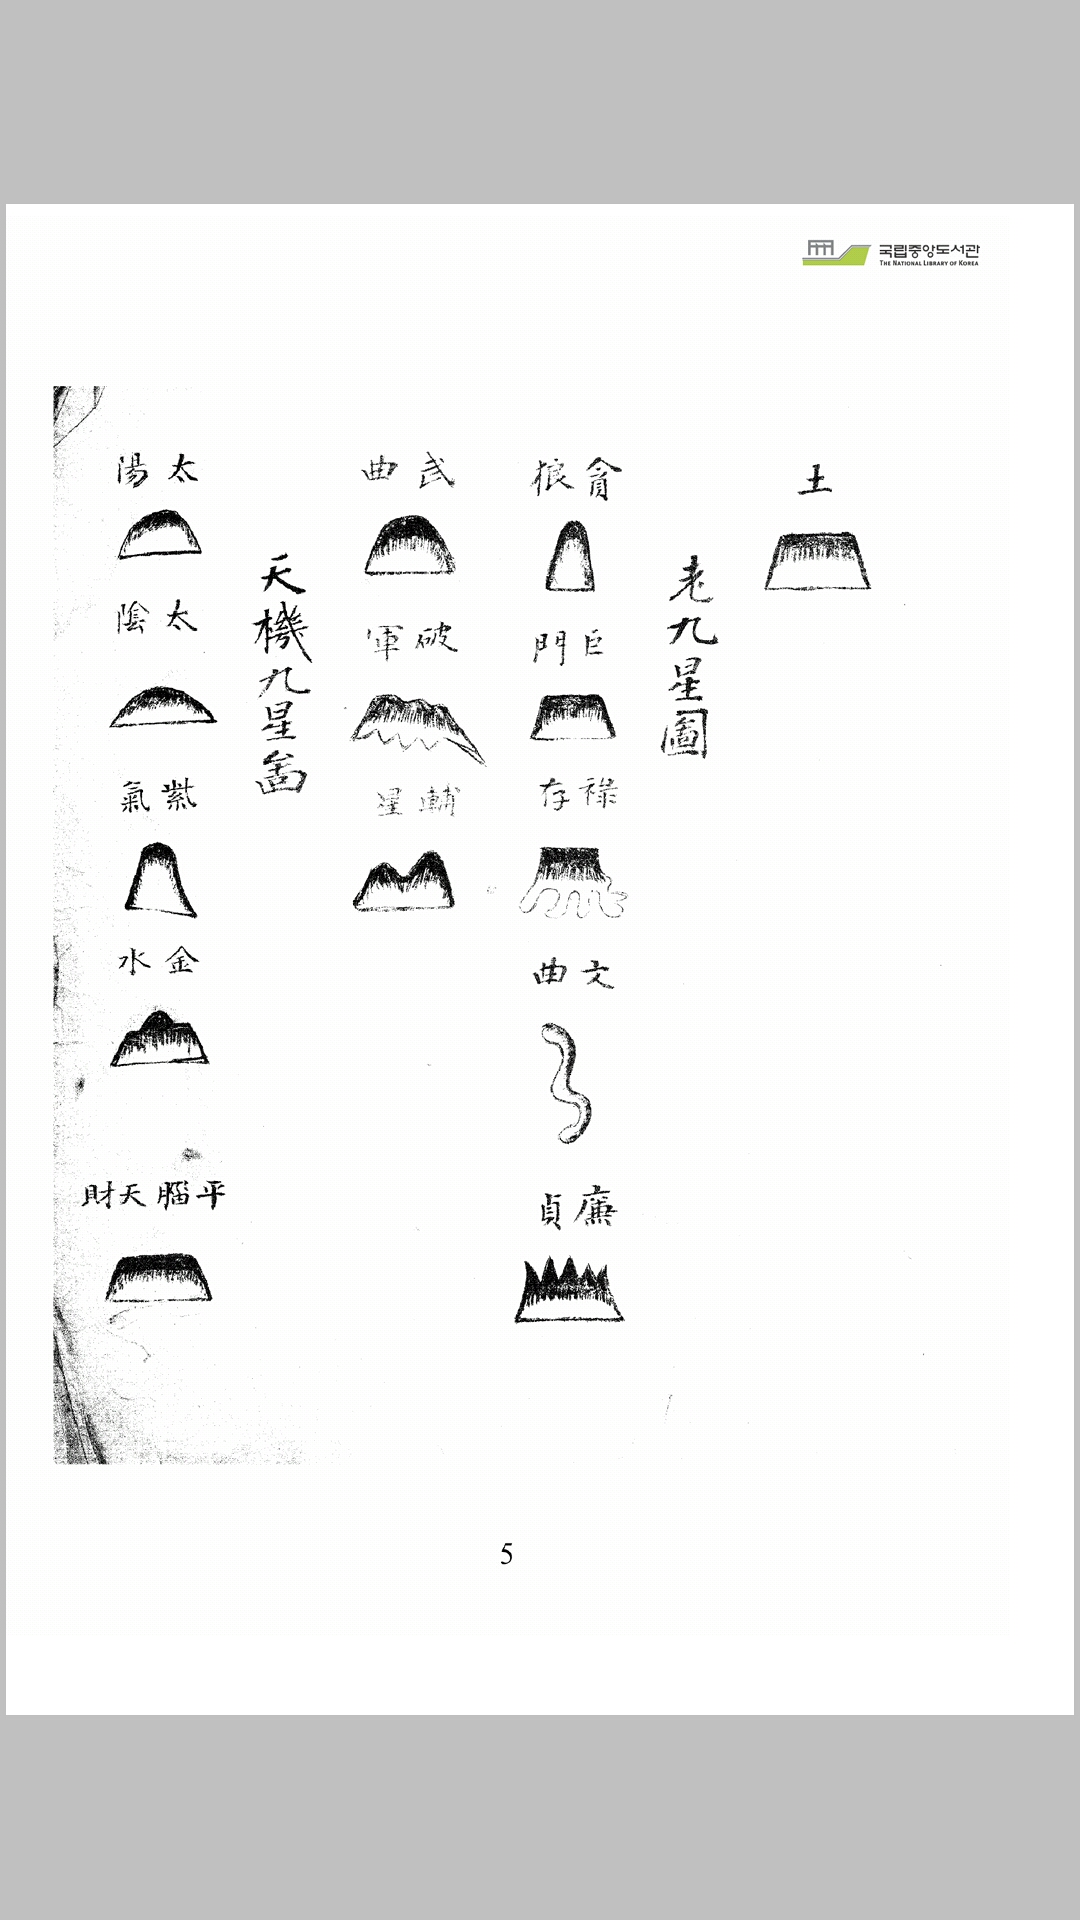 국립중앙도서관
THE NATIONAL LIBRARY OF KOREA
土
老九星圖
貪狼
巨門
祿存
文曲
廉貞
武曲
破軍
輔星
天機九星啚
太陽
太陰
紫氣
金水
平腦天財
5